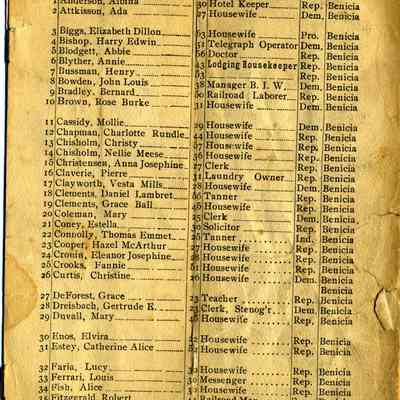 1 Anderson, Albina 30 Hotel Keeper Rep. Benicia
2 Attkisson, Ada Housewife Dem, Benicia
3 Biggs, Elizabeth Dillon 63 Housewife Pro. Benicia
4 Bishop, Harry Edwin 51 Telegraph Operator Dem. Benicia
5 Blodgett, Abbie 56 Doctor Rep. Benicia
6 Blyther, Annie 43 Lodging Housekeeper Rep. Benicia
7 Bussman, Henry 63 Rep. Benicia
8 Bowden, John Louis 38 Manager B. I. W. Dem. Benicia
9 Bradley, Bernard Railroad Laborer Rep. Benicia
10 Brown, Rose Burke 31 Housewife Dem. Benicia
11 Cassidy, Mollie 29 Housewife Dem. Benicia
12 Chapman, Charlotte Rundle 44 Housewife Rep. Benicia
13 Chisholm, Christy Housewife Rep. Benicia
14 Chisholm, Nellie Meese 36 Housewife Rep. Benicia
15 Christensen, Anna Josephine 27 Clerk Rep. Benicia
16 Claverie, Pierre 31 Laundry Owner Rep. Benicia
17 Clayworth, Vesta Mills 28 Housewife Dem. Benicia
18 Clements, Daniel Lambret Tanner Rep. Benicia
19 Clements, Grace Ball Housewife Rep. Benicia
20 Coleman, Mary 25 Clerk Dem. Benicia
21 Coney, Estella 30 Solicitor Rep. Benicia
22 Connolly, Thomas Emmet Tanner Ind. Benicia
23 Cooper, Hazel McArthur 27 Housewife Rep. Benicia
24 Cronin, Eleanor Josephine Housewife Rep. Benicia
25 Crooks, Fannie Housewife Rep. Benicia
26 Curtis, Christine 26 Housewife Dem. Benicia
Benicia
27 DeForest, Grace 23 Teacher Rep. Benicia
28 Dreisbach, Gertrude E. 23 Clerk, Stenog'r Dem. Benicia
29 Duvall, Mary Housewife Rep. Benicia
30 Enos, Elvira Housewife Rep. Benicia
31 Estey, Catherine Alice Housewife Rep. Benicia
32 Faria, Lucy Housewife Rep. Benicia
33 Ferrari, Louis 30 Messenger Rep. Benicia
34 Fish, Alice Housewife Rep. Benicia
35 Fitzgerald, Robert Railroad Rep. Benicia